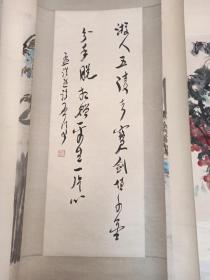 游人五陵去宝剑值千金
分手脱相赠平生一片心
孟浩然诗